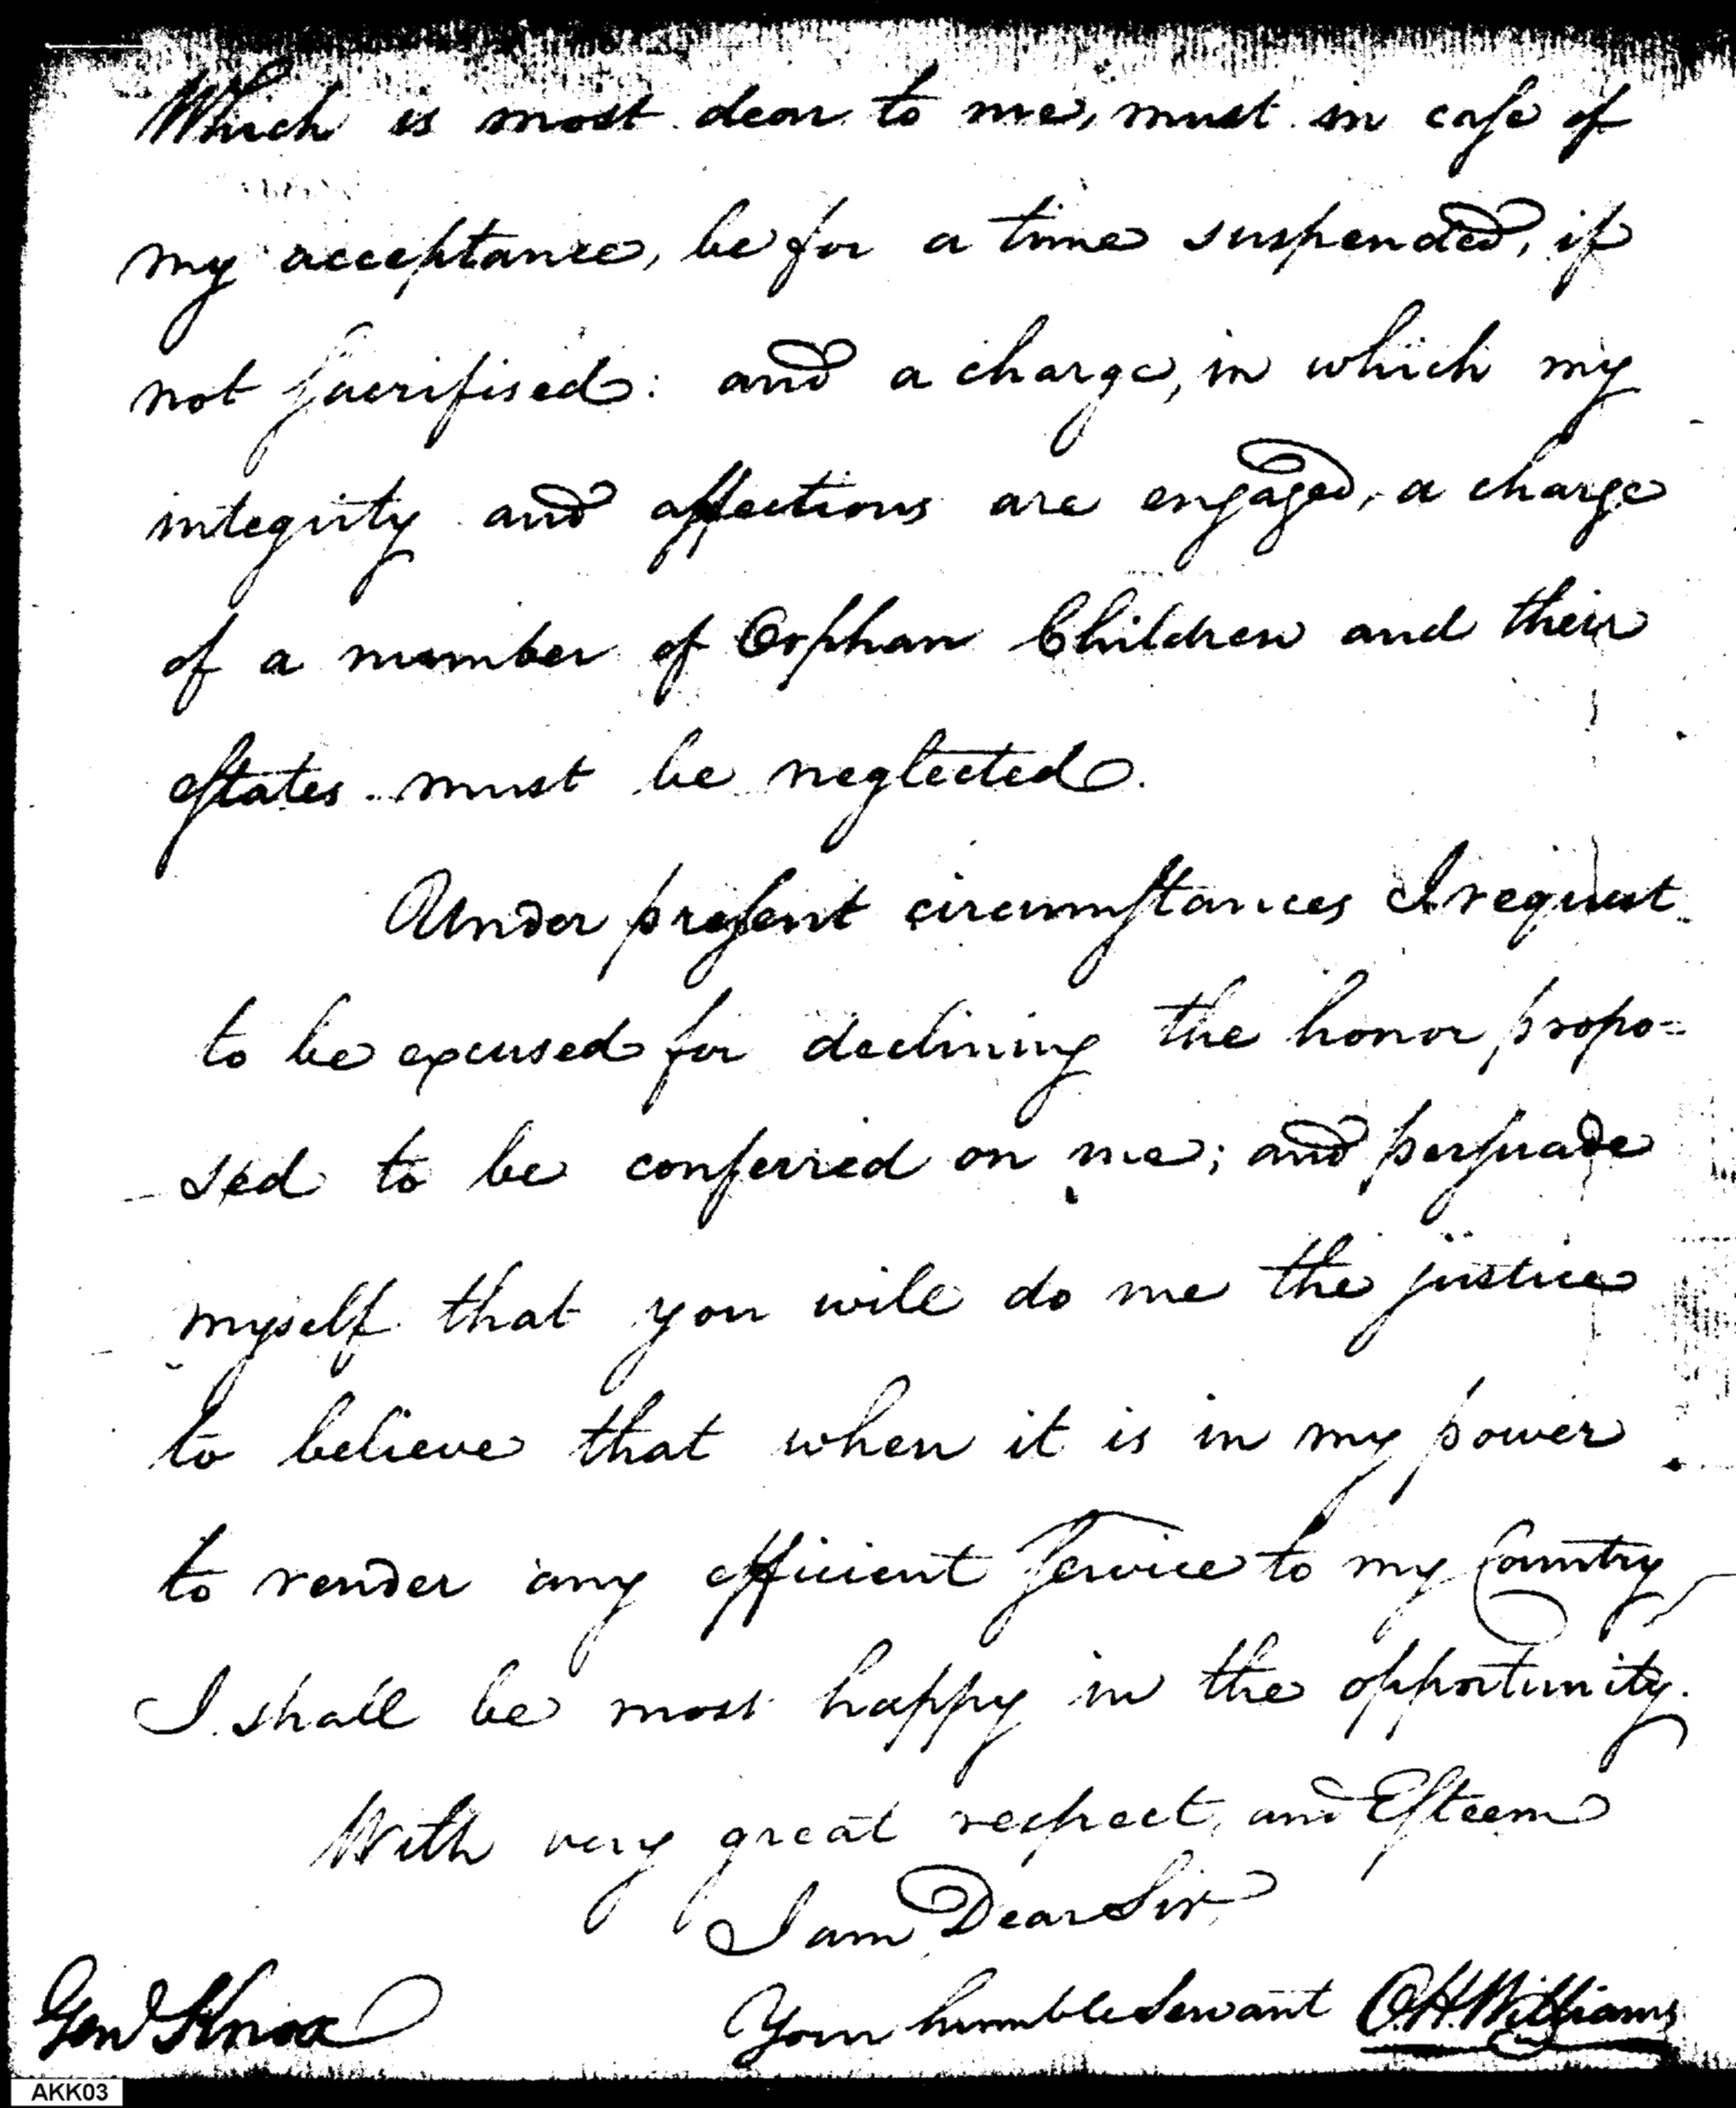 Which is most dear to me, must in case of
my acceptance, be for a time suspended, if
not sacrifised: and a charge, in which my
integrity and affections are engaged, a charge
of a number of Orphan Children and their
estates must be neglected.
Under present circumstances I request
to be excused for declining the honor propo=
sed to be conferred on me; and persuade
myself that you will do me the justice
to believe that when it is in my power
to render any efficient Service to my Country
I shall be most happy in the opportunity.
With very great respect, and Esteem
I am Dear Sir,
Your humble Servant O.H. Williams
Genl Knox
AKK03